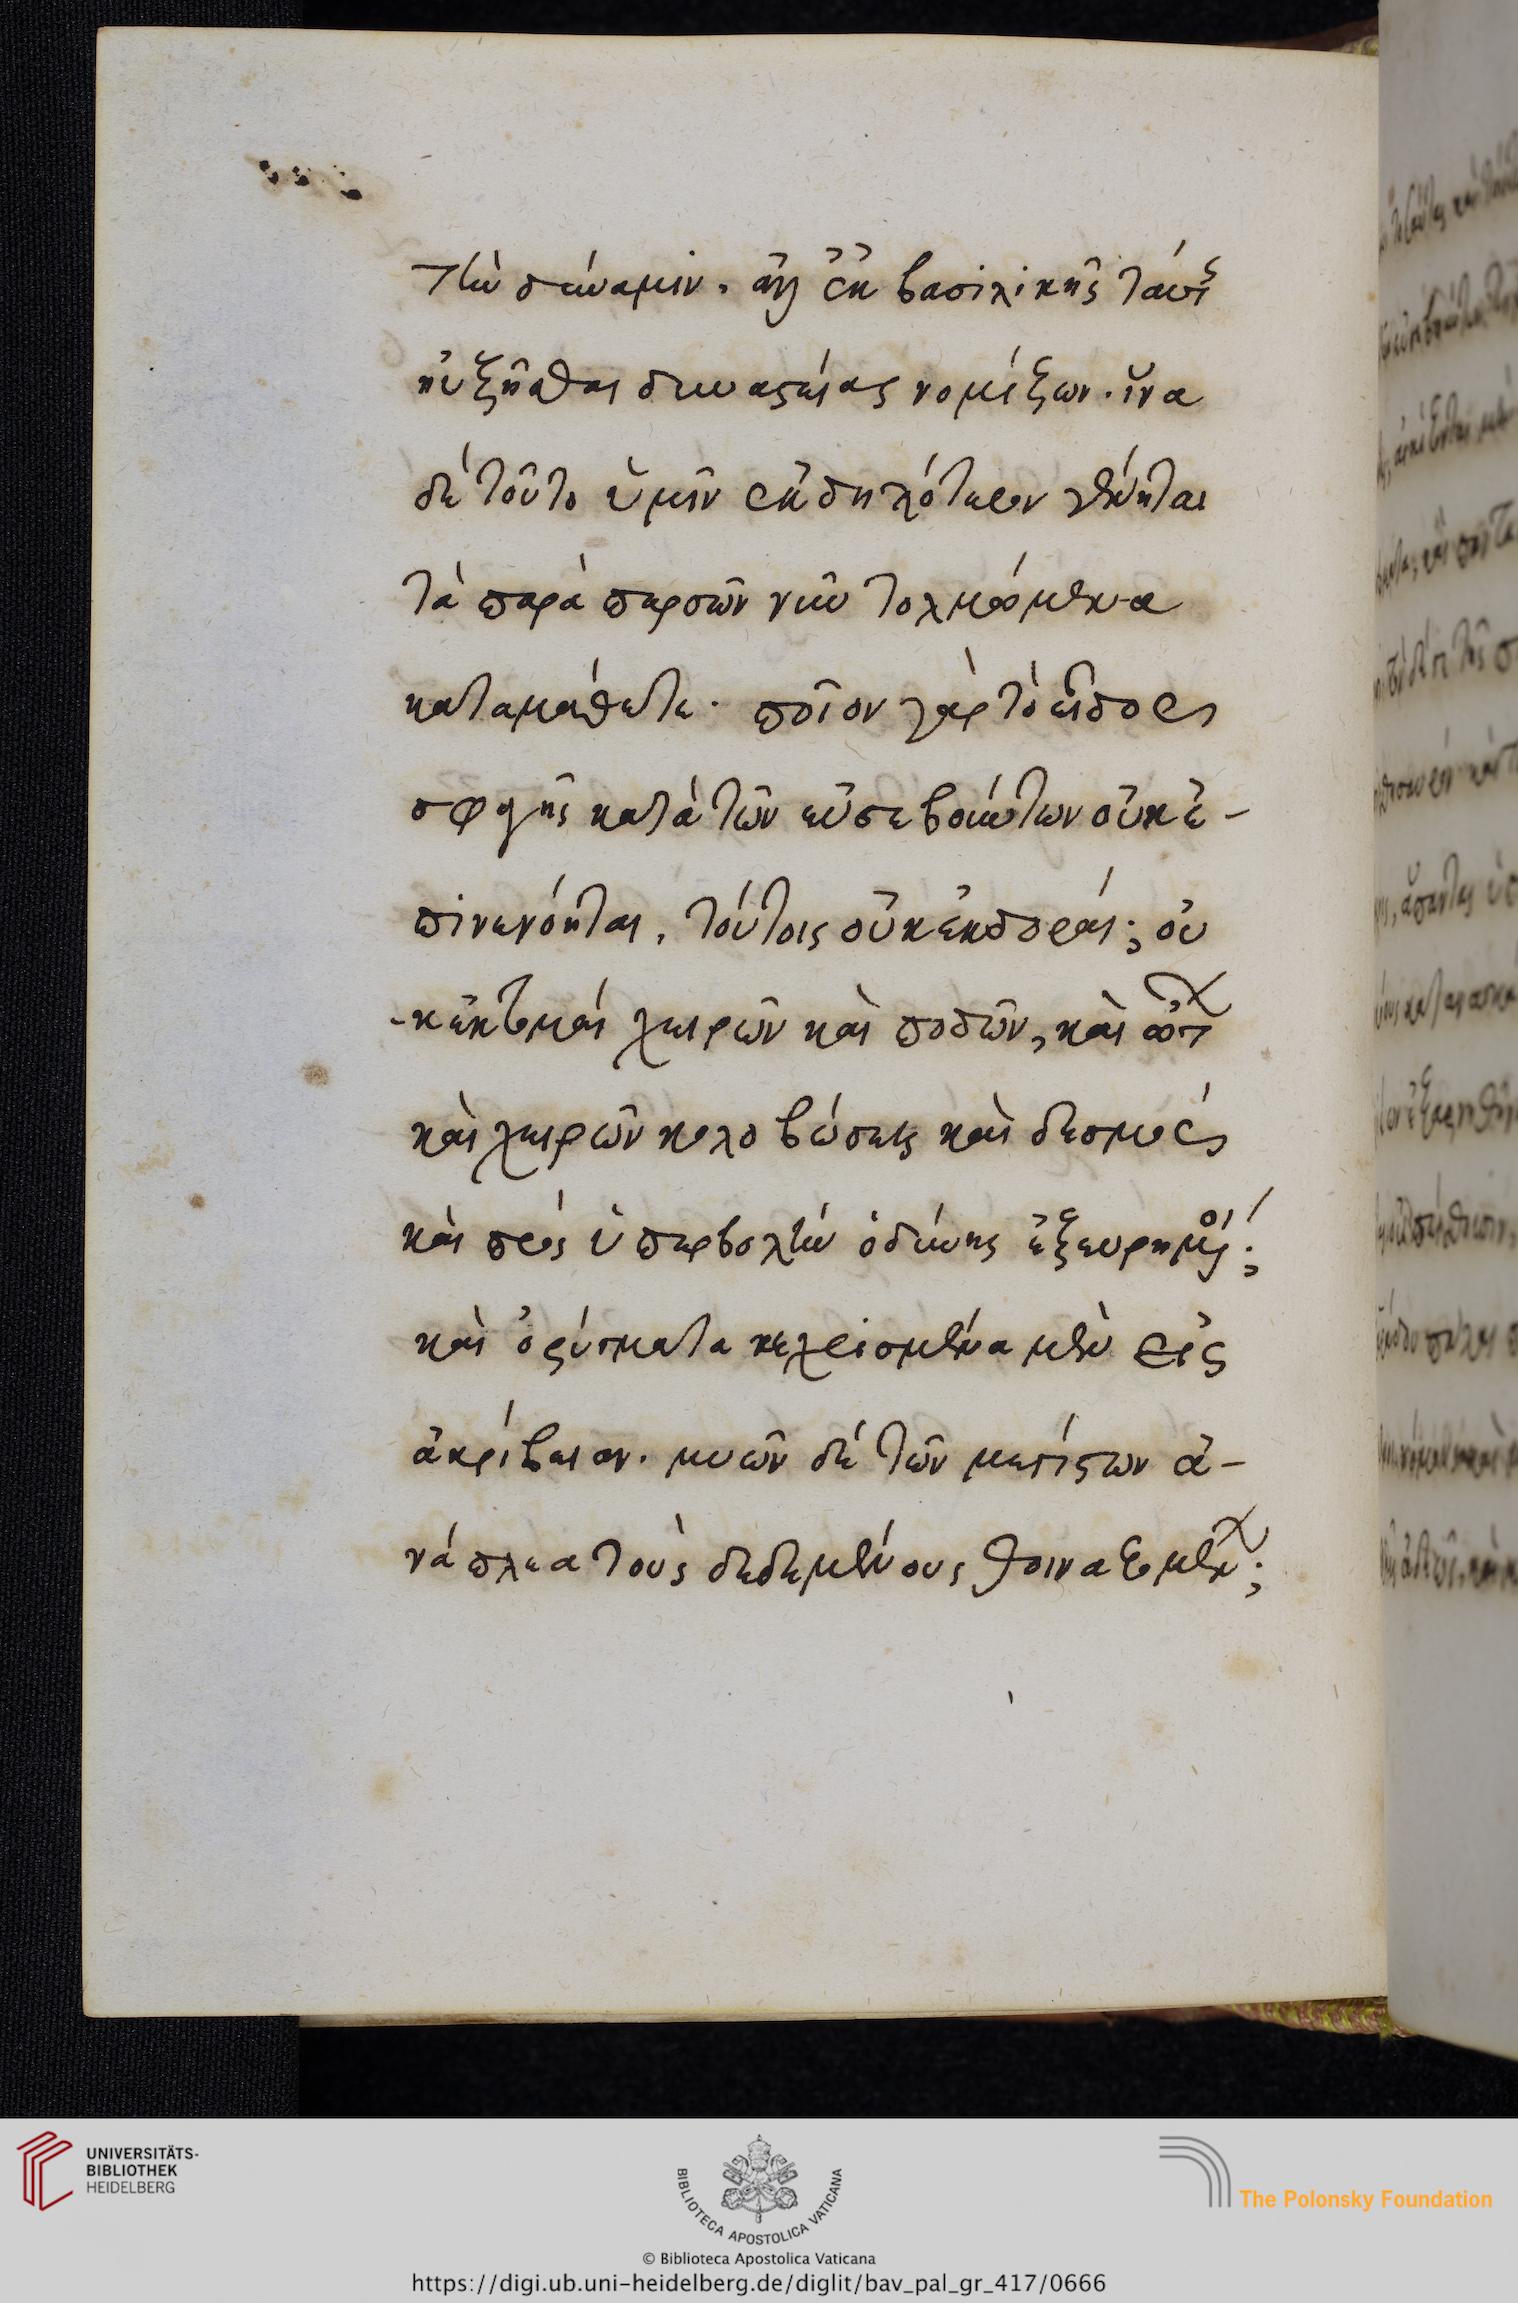 τὴν δύναμιν. ἀλλ' ἐκ βασιλικῆς ταύτ
ηὐξῆσθαι δυναστείας νομίζων. ἵνα
δὲ τοῦτο ὑμῖν ἐκδηλότερον γένηται
τὰ παρὰ περσῶν νῦν τολμώμενα
καταμάθετε. ποῖον γὰρ τὸ εἶδος
σφαγῆς κατὰ τῶν εὐσεβούντων οὐκ ἐ-
πινενόηται. τούτοις οὐκ ἐκδοραί; οὐ
-κ ἐκτομαί χειρῶν καὶ ποδῶν, καὶ ὤτ
καὶ χειρῶν κολοβώσεις καὶ δεσμοὶ
καὶ πρὸς ὑπερβολὴν ὀδύνης ἐξευρημένοι;
καὶ ὀρύγματα κεχρισμένα μὲν εἰς
ἀκρίβειαν. μυῶν δὲ τῶν μεγίστων ἀ-
νάπλεα τοὺς δεδεμένους θοινατομέν;
UNIVERSITÄTS-
BIBLIOTHEK
HEIDELBERG
BIBLIOTECA APOSTOLICA VATICANA
The Polonsky Foundation
© Biblioteca Apostolica Vaticana
https://digi.ub.uni-heidelberg.de/diglit/bav_pal_gr_417/0666